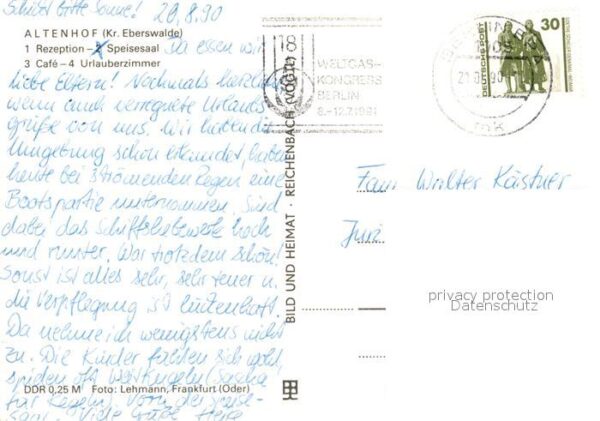 Schickt bitte Sonne! 20.8.90
ALTENHOF (Kr. Eberswalde)
1 Rezeption - 2 Speisesaal Da essen wir
3 Café - 4 Urlauberzimmer
Liebe Eltern! Nochmals herzliche
wenn auch verregnete Urlaubs
grüße von uns. Wir haben die
Umgebung schon erkundet, haben
heute bei strömenden Regen eine
Bootspartie unternommen. Sind
dabei das Schiffshebewerk hoch
und runter. War trotzdem schön!
Sonst ist alles sehr, sehr teuer u.
die Verpflegung ist lückenhaft.
Da nehme ich wenigstens nicht
zu. Die Kinder
spielen oft
DDR 0,25 M Foto: Lehmann, Frankfurt (Oder)
für Kegeln. Vorn der
Viele Grüße
BILD UND HEIMAT · REICHENBACH (VOGTL)
WELTGAS-
KONGRESS
BERLIN
8.-12.7.1991
30
DEUTSCHE POST
90
Fam. Walter Kästner
privacy protection
Datenschutz